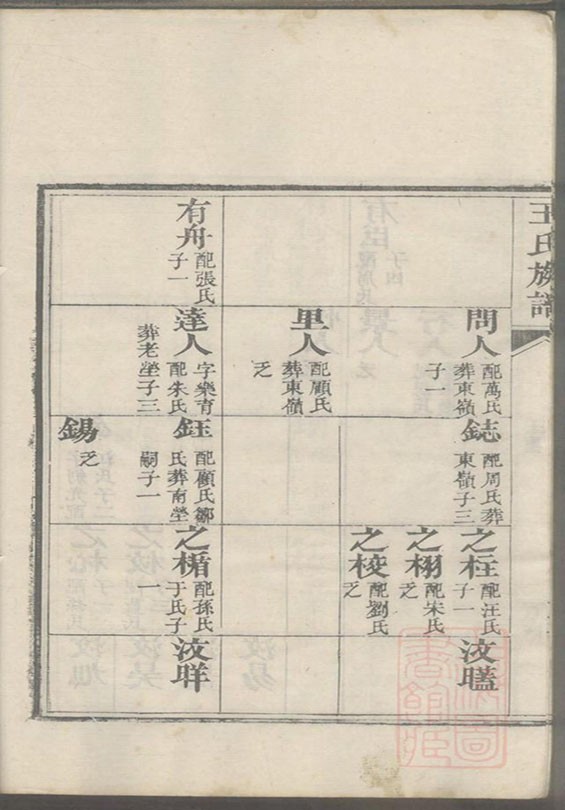 王氏族譜
問人
配萬氏
葬東嶺
子一
里人
配顧氏
葬東嶺
乏
有舟
配張氏
子一
達人
字樂育
配朱氏
葬老塋子三
鋕
配周氏葬
東嶺子三
鈺
配顧氏鄒
氏葬南塋
嗣子一
錫
乏
之柱
配汪氏
子一
之栩
配宋氏
乏
之梭
配劉氏
乏
之楯
配孫氏
于氏子
一